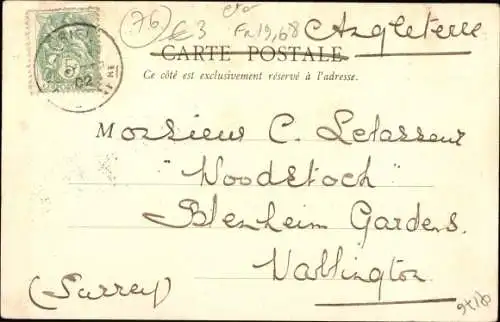 76
€3
Fr 19,68
Angleterre
CARTE POSTALE
Ce côté est exclusivement réservé à l'adresse.
5
02
Monsieur C. Letasseur
"Woodstock"
Blenheim Gardens.
Wallington
(Surrey)